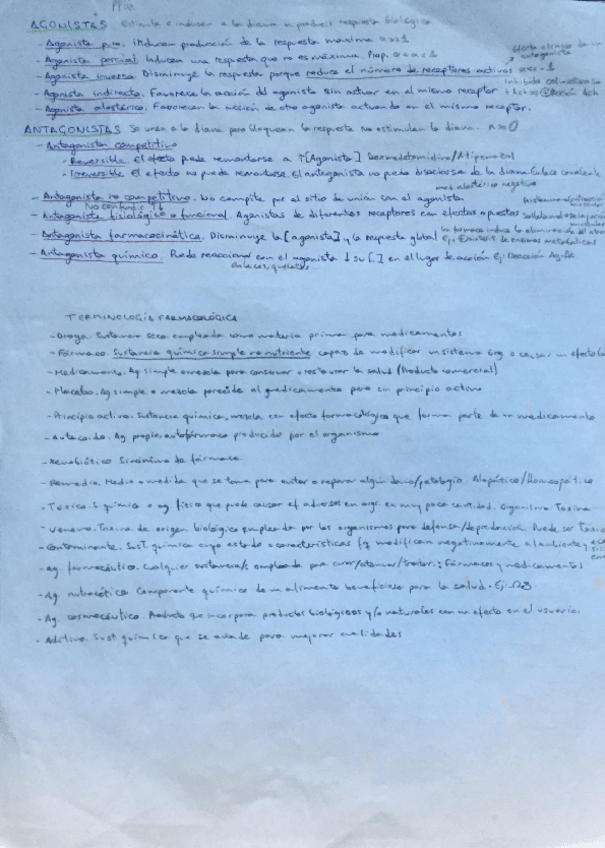 AGONISTAS Estimula o inducen a la diana a producir respuesta biológica
- Agonista puro. Inducen producción de la respuesta máxima α=1
- Agonista parcial Inducen una respuesta que no es máxima. Prop. 0<α<1
- Agonista inverso. Disminuye la respuesta porque reduce el número de receptores activos
- Agonista indirecto. Favorece la acción del agonista sin actuar en el mismo receptor
- Agonista alostérico. Favorecen la acción de otro agonista actuando en el mismo receptor.
ANTAGONISTAS Se unen a la diana pero bloquean la respuesta No estimulan la diana. α=0
- Antagonista competitivo
· Reversible. El efecto puede remontarse a ↑[Agonista] Dexmedetomidina/Atipamezol
· Irreversible El efecto no puede remontarse El antagonista no puede disociarse de la diana Enlace covalente
mod alostérico negativo
- Antagonista no competitivo. No compite por el sitio de unión con el agonista
- Antagonista fisiológico o funcional. Agonistas de diferentes receptores con efectos opuestos
- Antagonista farmacocinética. Disminuye la [agonista] y la respuesta global
Ej: de enzimas metabólicas
- Antagonista químico. Puede reaccionar con el agonista ↓ su [.] en el lugar de acción Ej: Reacción Ag-Ac
enlaces, quelatos
TERMINOLOGÍA FARMACOLÓGICA
- Droga. Sustancia seca empleada como materia prima para medicamentos
- Fármaco. Sustancia química simple no nutriente capaz de modificar un sistema org o causar un efecto
- Medicamento. Ag simple o mezcla para conservar o restaurar la salud (Producto comercial)
- Placebo. Ag simple o mezcla parecido al medicamento pero sin principio activo
- Principio activo. Sustancia química, mezcla con efecto farmacológico que forma parte de un medicamento
- Autacoide. Ag propio, autofármaco producido por el organismo
- Xenobiótico Sinónimo de fármaco
- Remedio. Medio o medida que se toma para evitar o reparar algún daño/patología. Alopático/Homeopático
- Tóxico. S química o ag físico que puede causar ef adversos en org. en muy poca cantidad. Organismo Toxina
- Veneno. Toxina de origen biológico empleada por los organismos para defensa/depredación. Puede ser
- Contaminante. Sust. química cuyo estado o características fq modifican negativamente al ambiente y
- Ag farmacéutico. Cualquier sustancia/s empleada para curar/atenuar/tratar.: Fármacos y medicamentos
- Ag nutracético Componente químico de un alimento beneficioso para la salud. Ej: Ω3
- Ag. cosmecéutico. Producto que incorpora productos biológicos y/o naturales con un efecto en el usuario.
- Aditivo. Sust química que se añade para mejorar cualidades